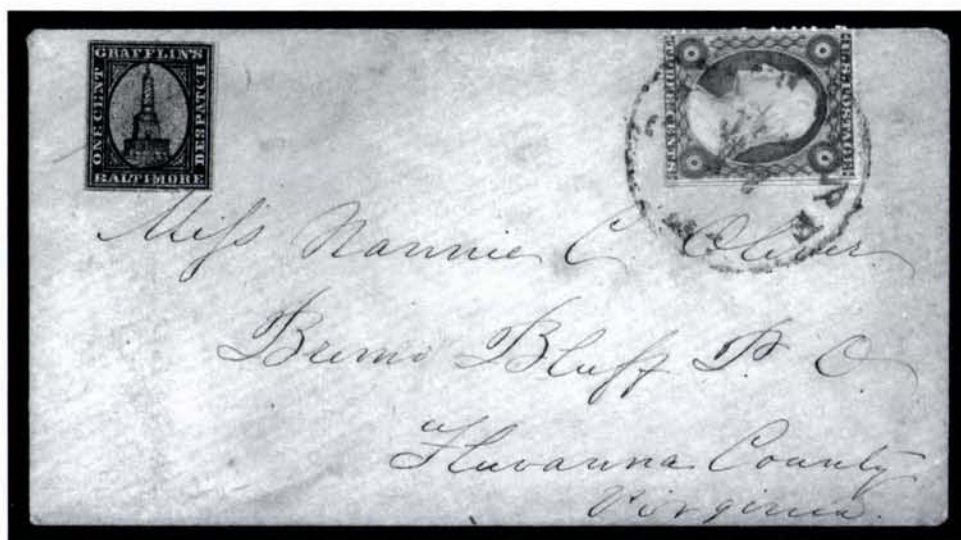 GRAFFLIN'S
ONE CENT
DESPATCH
BALTIMORE
U.S. POSTAGE
THREE CENTS
Miss Nannie C. Oliver
Bremo Bluff P. O.
Fluvanna County
Virginia.